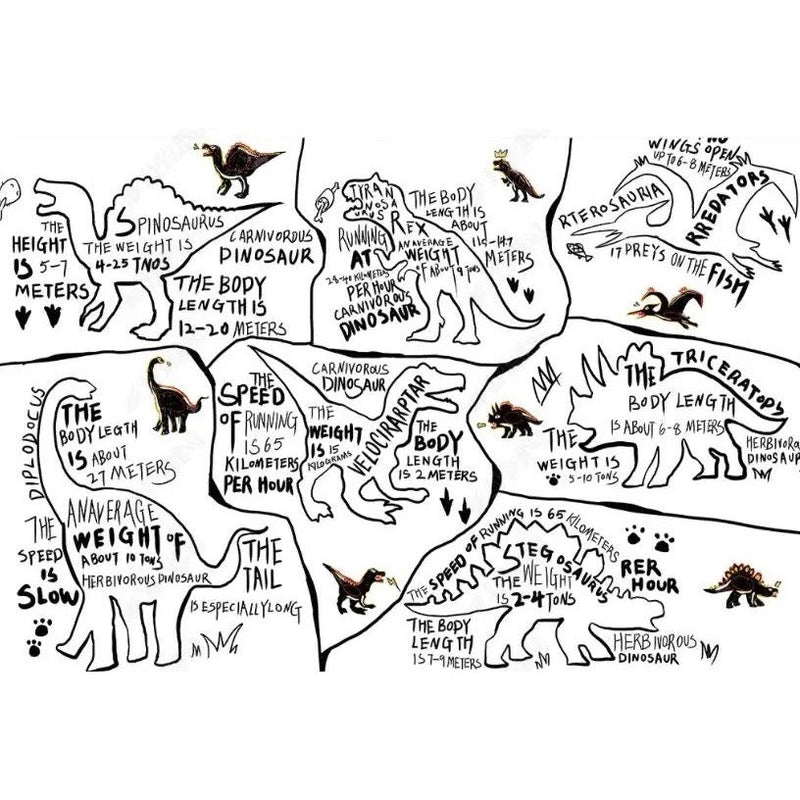 SPINOSAURUS
THE
HEIGHT
IS 5-7
METERS
THE WEIGHT IS
4-25 TNOS
CARNIVOROUS
DINOSAUR
THE BODY
LENGTH IS
12-20 METERS
TYRAN
NOSA
URUS
REX
RUNNING
AT
PER HOUR
CARNIVOROUS
DINOSAUR
AN AVERAGE
WEIGHT
OF ABOUT 9 TONS
THE BODY
LENGTH IS
ABOUT
METERS
WINGS OPEN
UP TO 6-8 METERS
RTEROSAURIA
RREDATORS
17 PREYS ON THE FISH
DIPLODOCUS
THE
BODY LEGTH
IS ABOUT
27 METERS
ANAVERAGE
WEIGHT OF
ABOUT 10 TONS
HERBIVOROUS DINOSAUR
THE
SPEED
IS
SLOW
THE
TAIL
IS ESPECIALLYLONG
THE
SPEED
OF RUNNING
IS 65
KILOMETERS
PER HOUR
CARNIVOROUS
DINOSAUR
THE
WEIGHT
IS 15
KILOGRAMS
VELOCIRARPTAR
THE
BODY
LENGTH
IS 2 METERS
THE TRICERATOPS
BODY LENGTH
IS ABOUT 6-8 METERS
THE
WEIGHT IS
5-10 TONS
HERBIVORO
DINOSAUR
THE SPEED OF RUNNING IS 65 KILOMETERS
RER
HOUR
STEGOSAURUS
THE WEIGHT
IS 2-4 TONS
THE BODY
LENGTH
IS 7-9 METERS
HERBIVOROUS
DINOSAUR